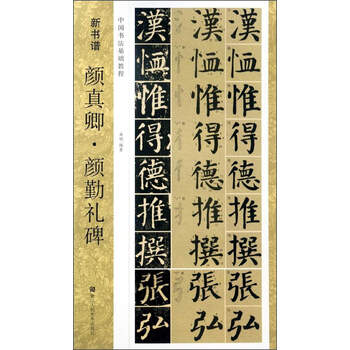 新书谱
颜真卿·颜勤礼碑
中国书法基础教程
漢恤惟得德推撰張弘
漢恤惟得德推撰張弘
漢恤惟得德推撰張弘